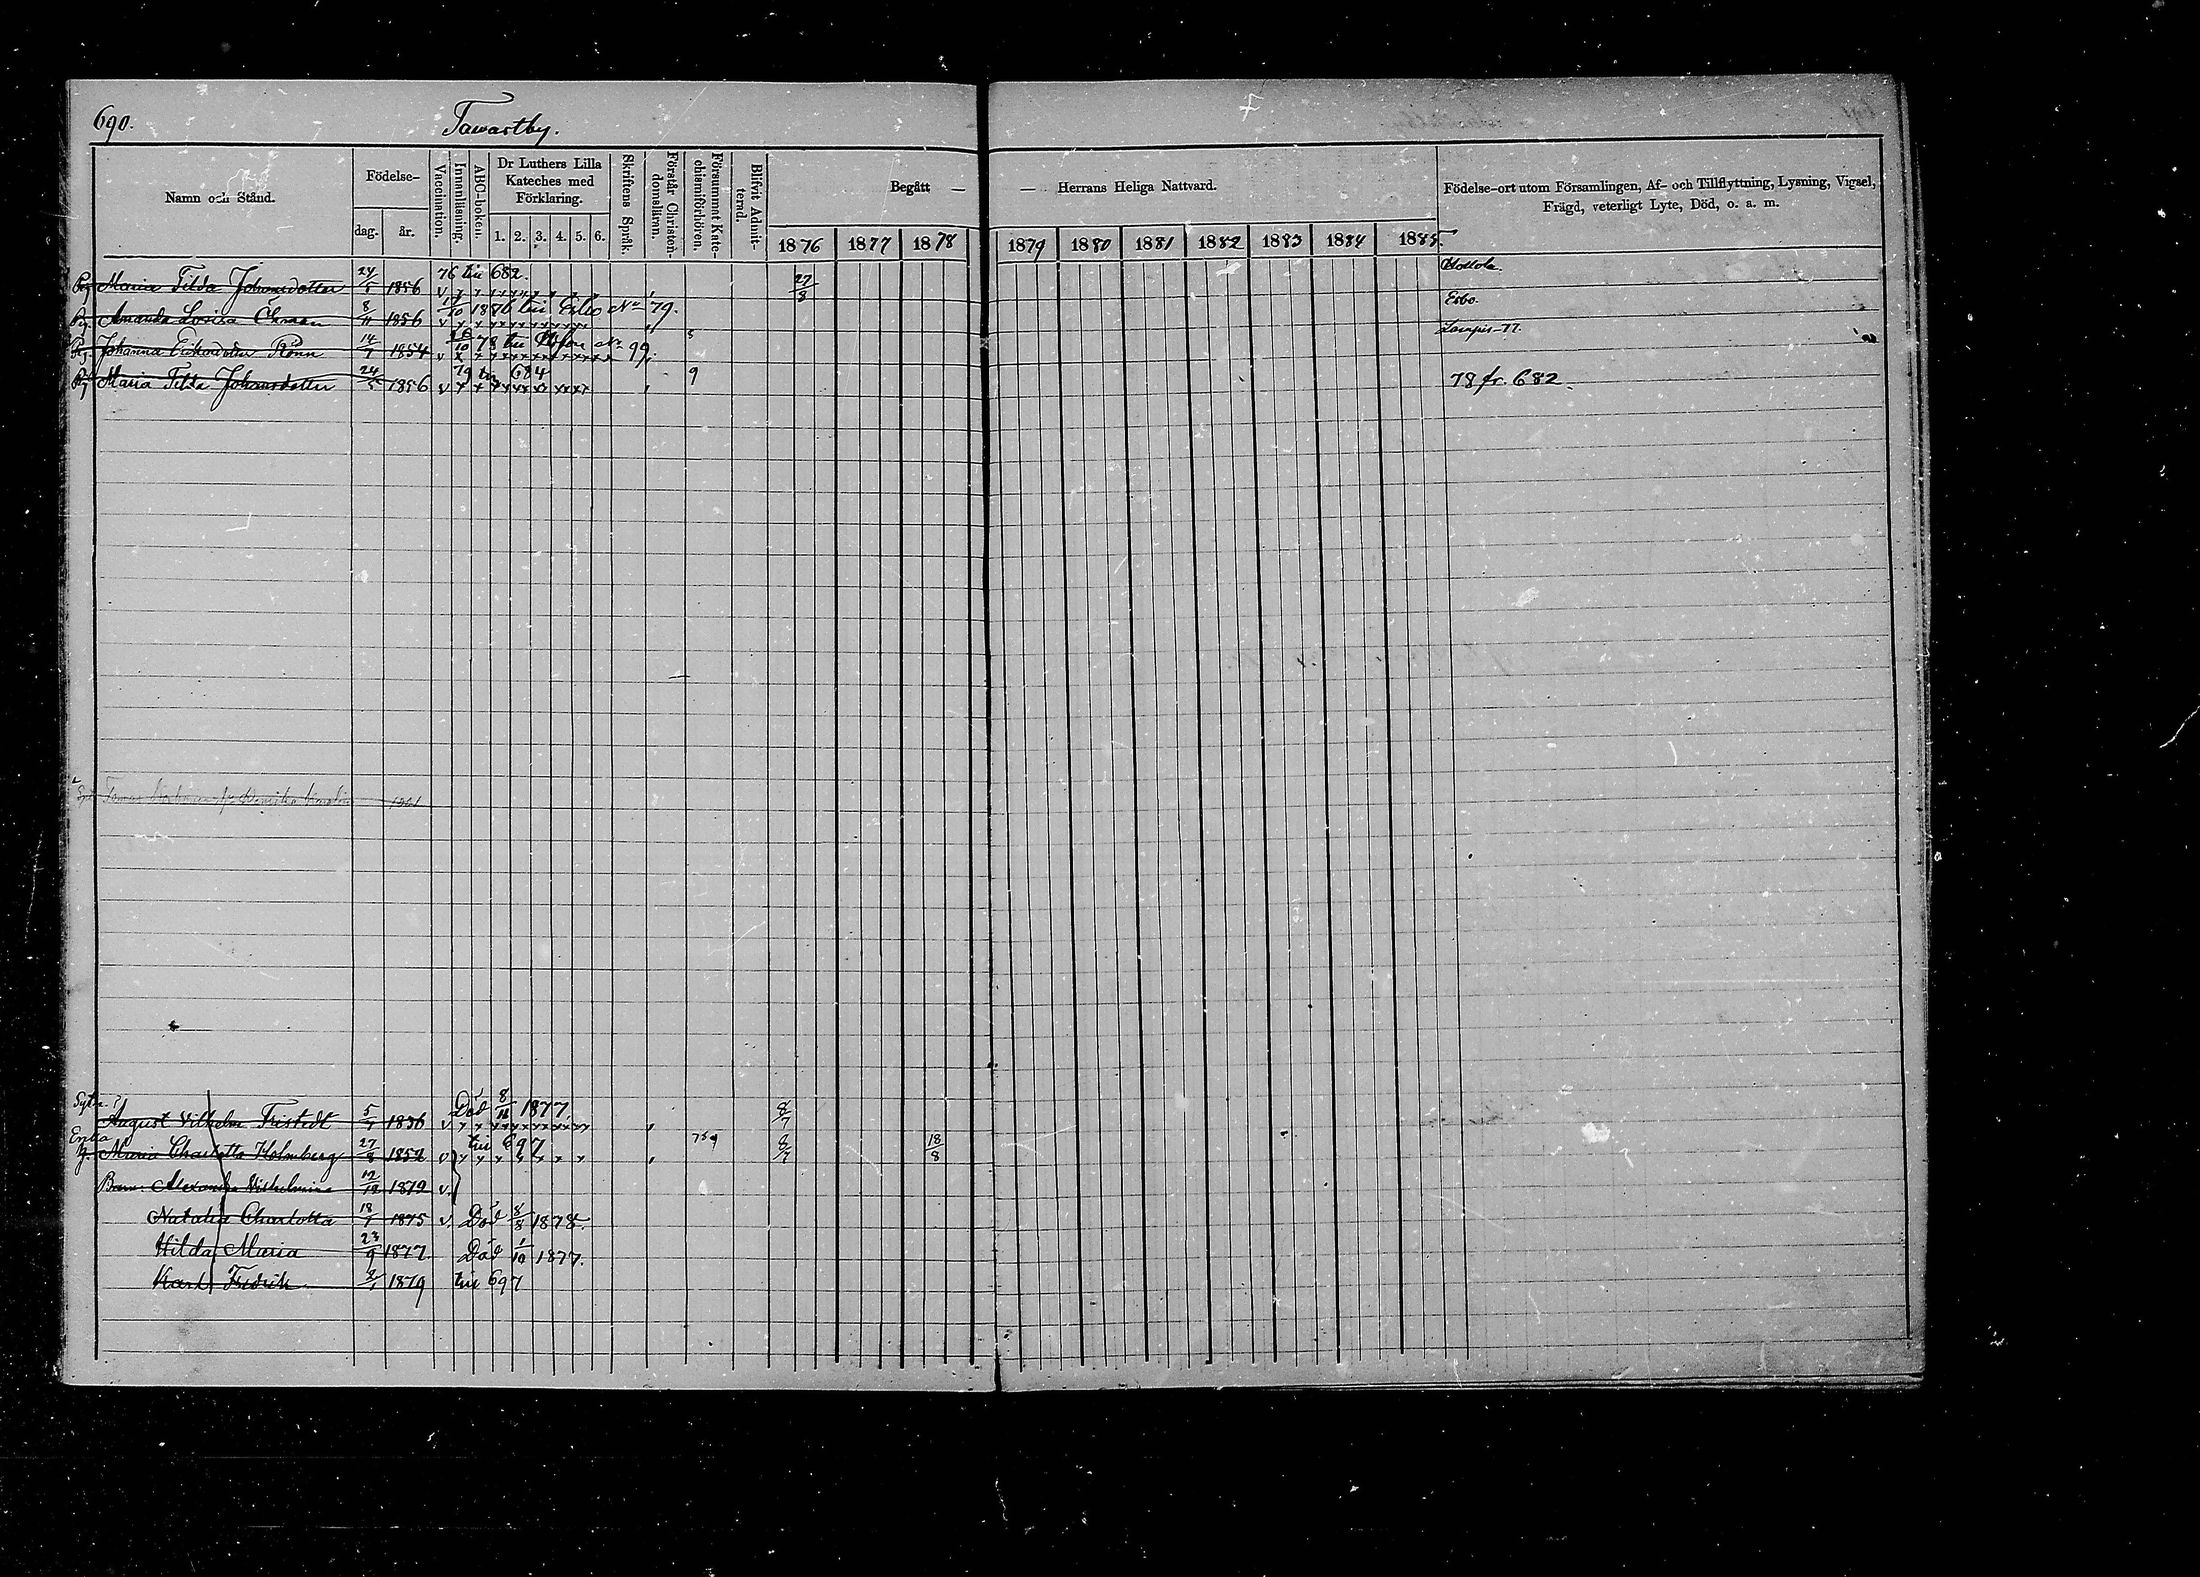 690. Tawastby.
Namn och Stånd. Födelse- dag. år. Vaccination. Innanläsning. ABC-boken. Dr Luthers Lilla Kateches med Förklaring. 1. 2. 3. 4. 5. 6. Skriftens Språk. Förstår Christendomsläran. Försummat Katechismiförhören. Blifvit Admitterad. Begått — — Herrans Heliga Nattvard. Födelse-ort utom Församlingen, Af- och Tillflyttning, Lysning, Vigsel, Frägd, veterligt Lyte, Död, o. a. m.
1876 1877 1878 1879 1880 1881 1882 1883 1884 1885.
76 till 682. Hollola.
Pig. Maria Tilda Johansdotter 24/5 1856 v 27/8
/10 1876 till Esbo No 79. Esbo.
Pig. Amanda Lovisa 8/11 1856 v
/10 78 till No 99. Lampis 77.
Pig. Johanna Eriksdotter Rönn 14/7 1854 v
79 till 684
Pig. Maria Tilda Johansdotter 24/5 1856 v 9 78 fr. 682.
Död 8/11 1877
August Vilhelm Fristedt 5/7 1836 v 8/7
Enka till 697
Maria Charlotta Holmberg 27/8 1852 v 8/7 18/8
Barn: Alexandra Vilhelmina 12/12 1879 v.
Natalia Charlotta 18/1 1875 v. Död 8/8 1878.
Hilda Maria 23/9 1877 Död 1/10 1877.
Karl Fredrik 2/1 1879 till 697